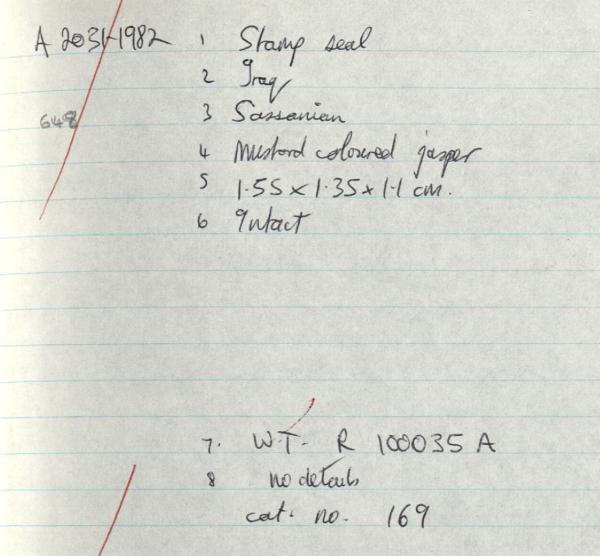 A 2031-1982 1 Stamp seal
2 Iraq
648
3 Sassanian
4 Mustard coloured jasper
5 1.55 x 1.35 x 1.1 cm.
6 Intact
7. W.T. R 100035 A
8 no details
cat. no. 169